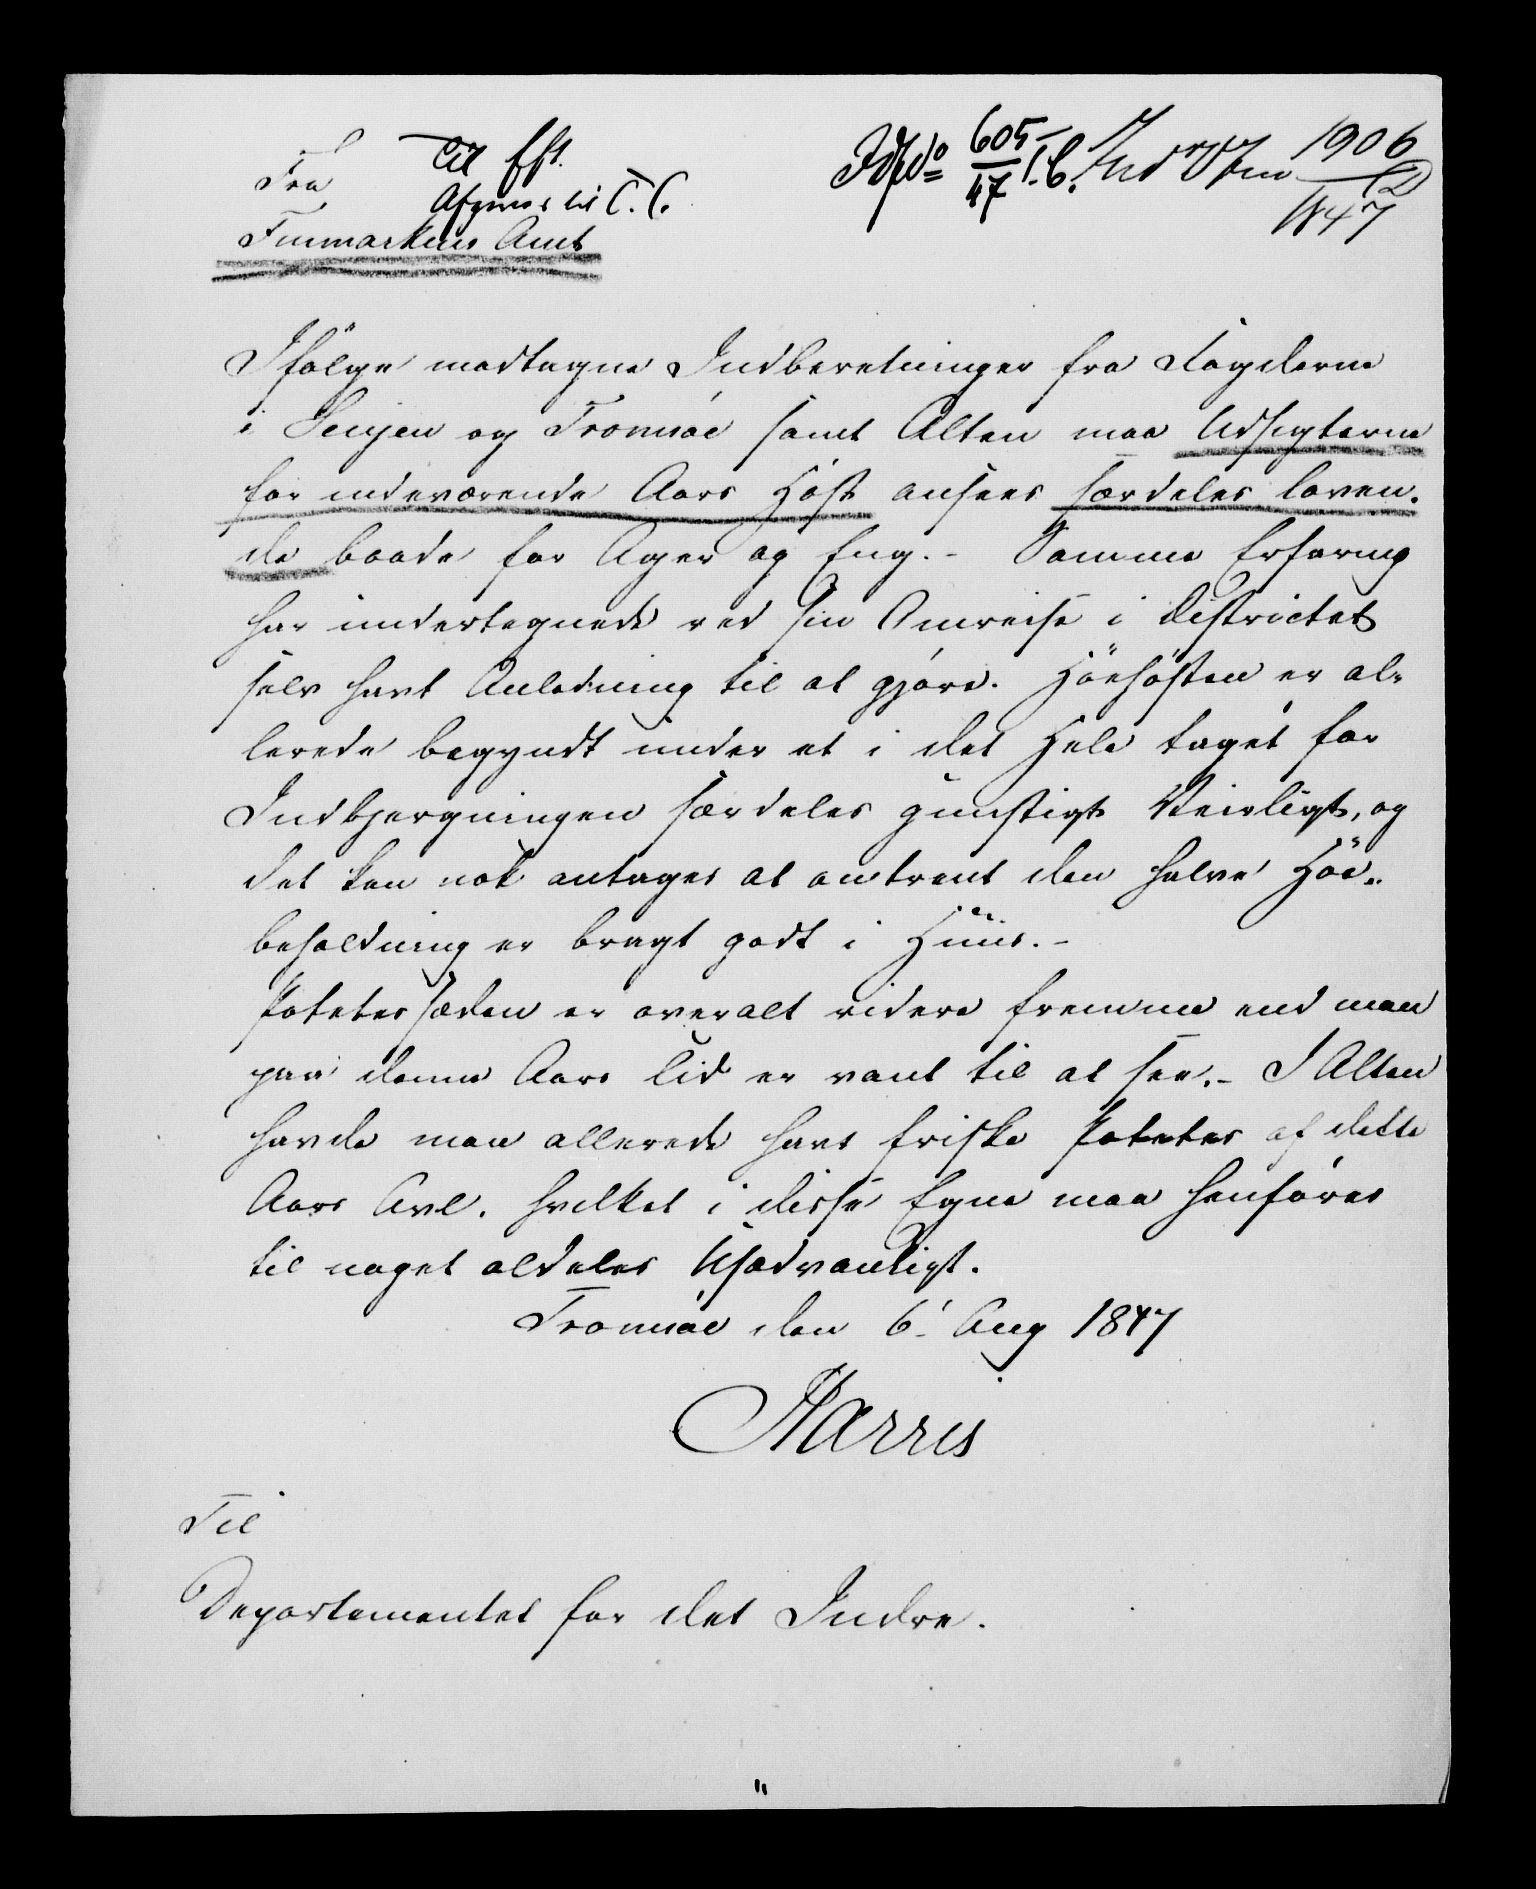 Fra
Finmarkens Amt
Til Eft.
Afgives til T. C.
605
47 T.C.
1906
D
1847
Ifölge modtagne Indberetninger fra Fogderne
i Senjen og Tromsöe samt Alten maa Udsigterne
for indeværende Aars Höst ansees særdeles loven-
de baade for Ager og Eng. - Samme Erfaring
har undertegnede ved sin Omreise i Districtet
selv havt Anledning til at gjöre. Höehösten er al-
lerede begyndt under et i det Hele taget for
Indbjergningen særdeles gunstigt Veirligt, og
det kan nok antages at omtrent den halve Höe-
beholdning er bragt godt i Huus. -
Potetessæden er overalt videre fremme end man
paa denne Aars Tid er vant til at see. - I Alten
havde man allerede havt friske Potetes af dette
Aars Avl, hvilket i disse Egne maa henföres
til noget aldeles Usædvanligt.
Tromsöe den 6' Aug 1847
Harris
Til
Departementet for det Indre.